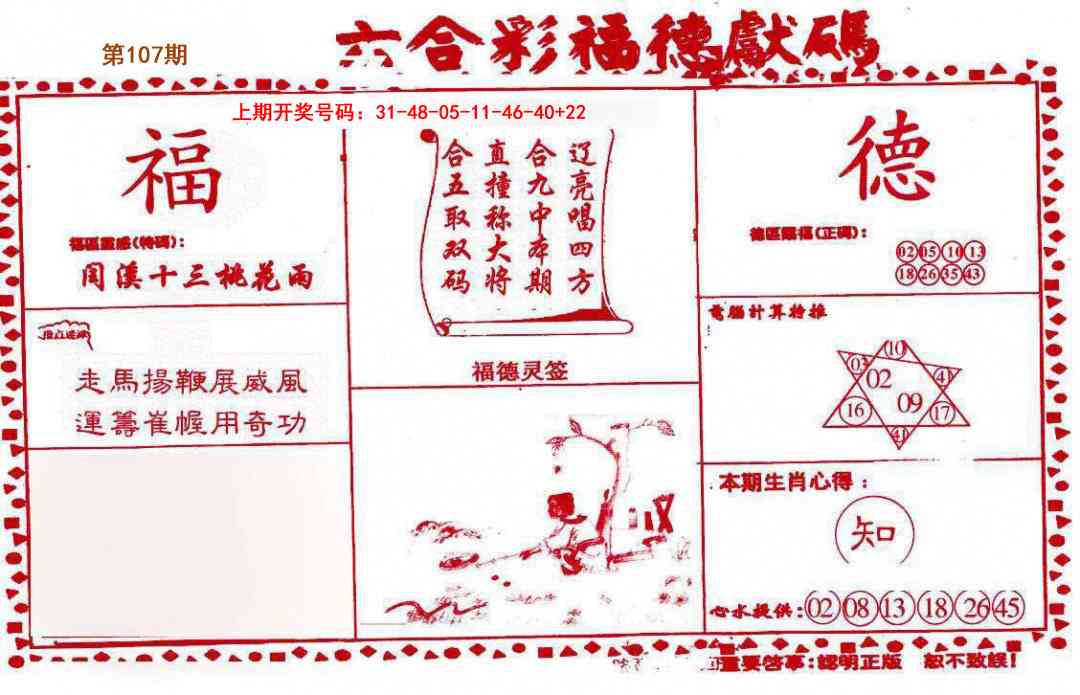 六合彩福德獻碼
第107期
上期开奖号码：31-48-05-11-46-40+22
福
福區靈感(特碼)：
閏溪十三桃花雨
走馬揚鞭展威風
運籌崔幄用奇功
辽亮唱四方
合九中本期
直撞称大将
合五取双码
福德灵签
德
德區賜福(正碼)：
02 05 10 13
18 26 35 43
電腦計算特推
10
03 02 41
16 09 17
41
本期生肖心得：
知
心水提供：02 08 13 18 26 45
重要啓事：認明正版 恕不致誤！